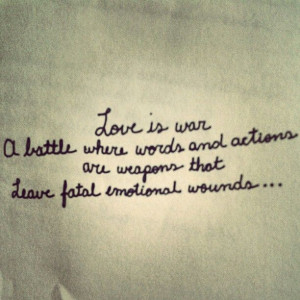 Love is war
A battle where words and actions
are weapons that
Leave fatal emotional wounds...